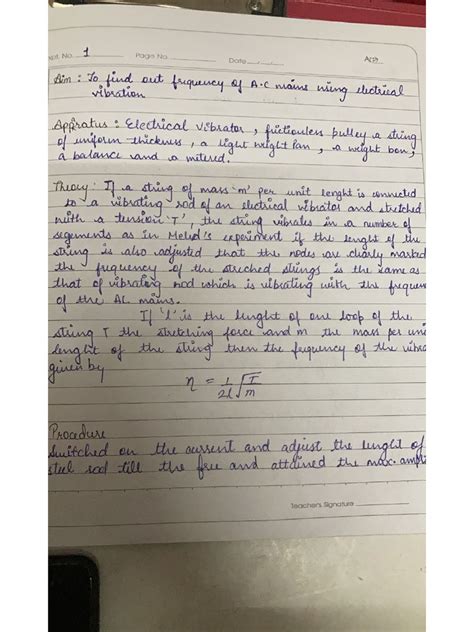 Expt. No. 1 Page No. Date
Aim : To find out frequency of A.C mains using electrical
vibration
Appratus : Electrical vibrator, frictionless pulley a string
of uniform thickness, a light weight pan, a weight box,
a balance and a
Theory : If a string of mass 'm' per unit lenght is connected
to a vibrating rod of an electrical vibrator and stretched
with a tension 'T', the string vibrates in a number of
segements as in experiment if the lenght of the
string is also adjusted that the nodes are clearly marked
the frequency of the streched strings is the same as
that of vibrating rod which is vibrating with the frequen
of the AC mains.
If 'l' is the lenght of one loop of the
string T the stretching force and m the mass per uni
lenght of the string then the frequency of the vibra
given by
n = 1/2l √T/m
Procedure
Switched on the current and adjust the lenght of
steel rod till the free end attained the max. ampli
Teacher's Signature